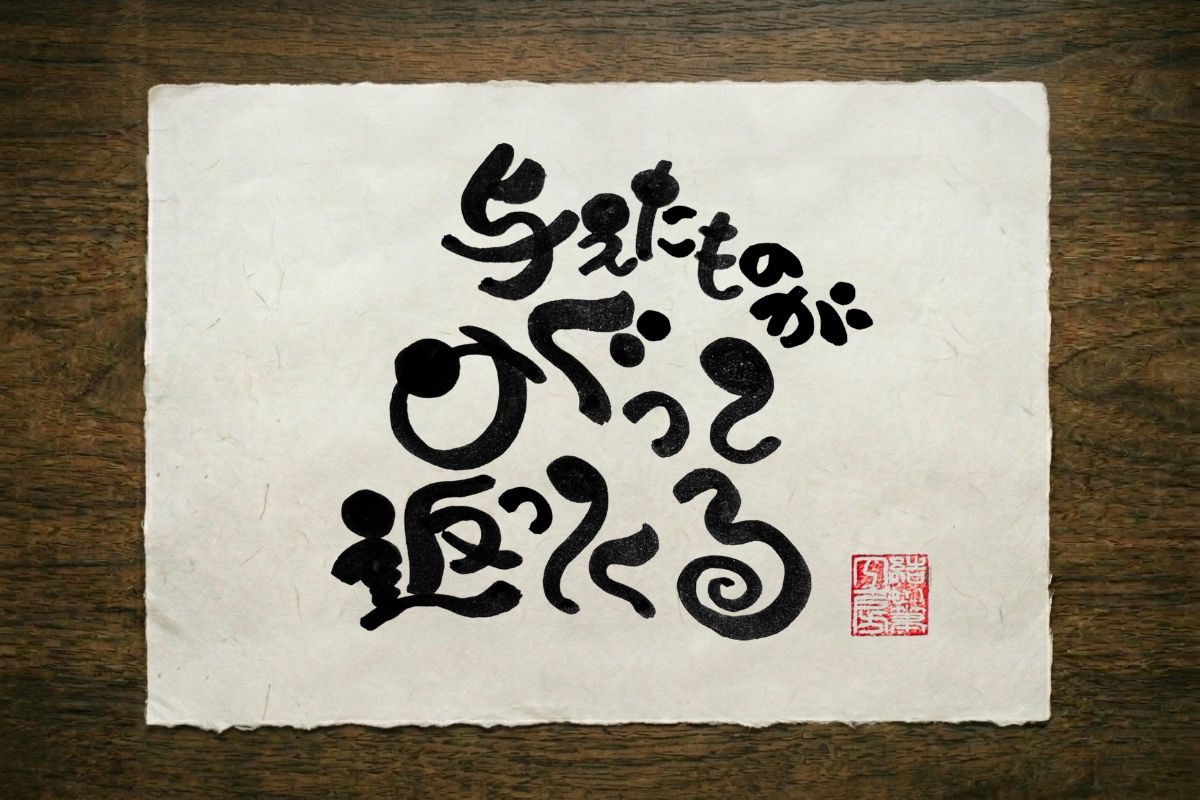 与えたものが
めぐって
返ってくる